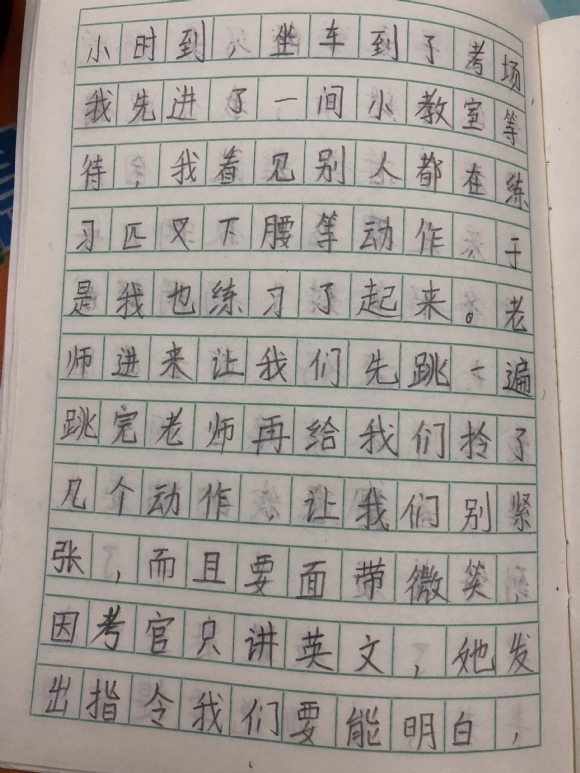 小时到，坐车到了考场，
我先进了一间小教室等
待，我看见别人都在练
习匹叉下腰等动作，于
是我也练习了起来。老
师进来让我们先跳一遍
跳完老师再给我们拎了
几个动作，让我们别紧
张，而且要面带微笑，
因考官只讲英文，她发
出指令我们要能明白，